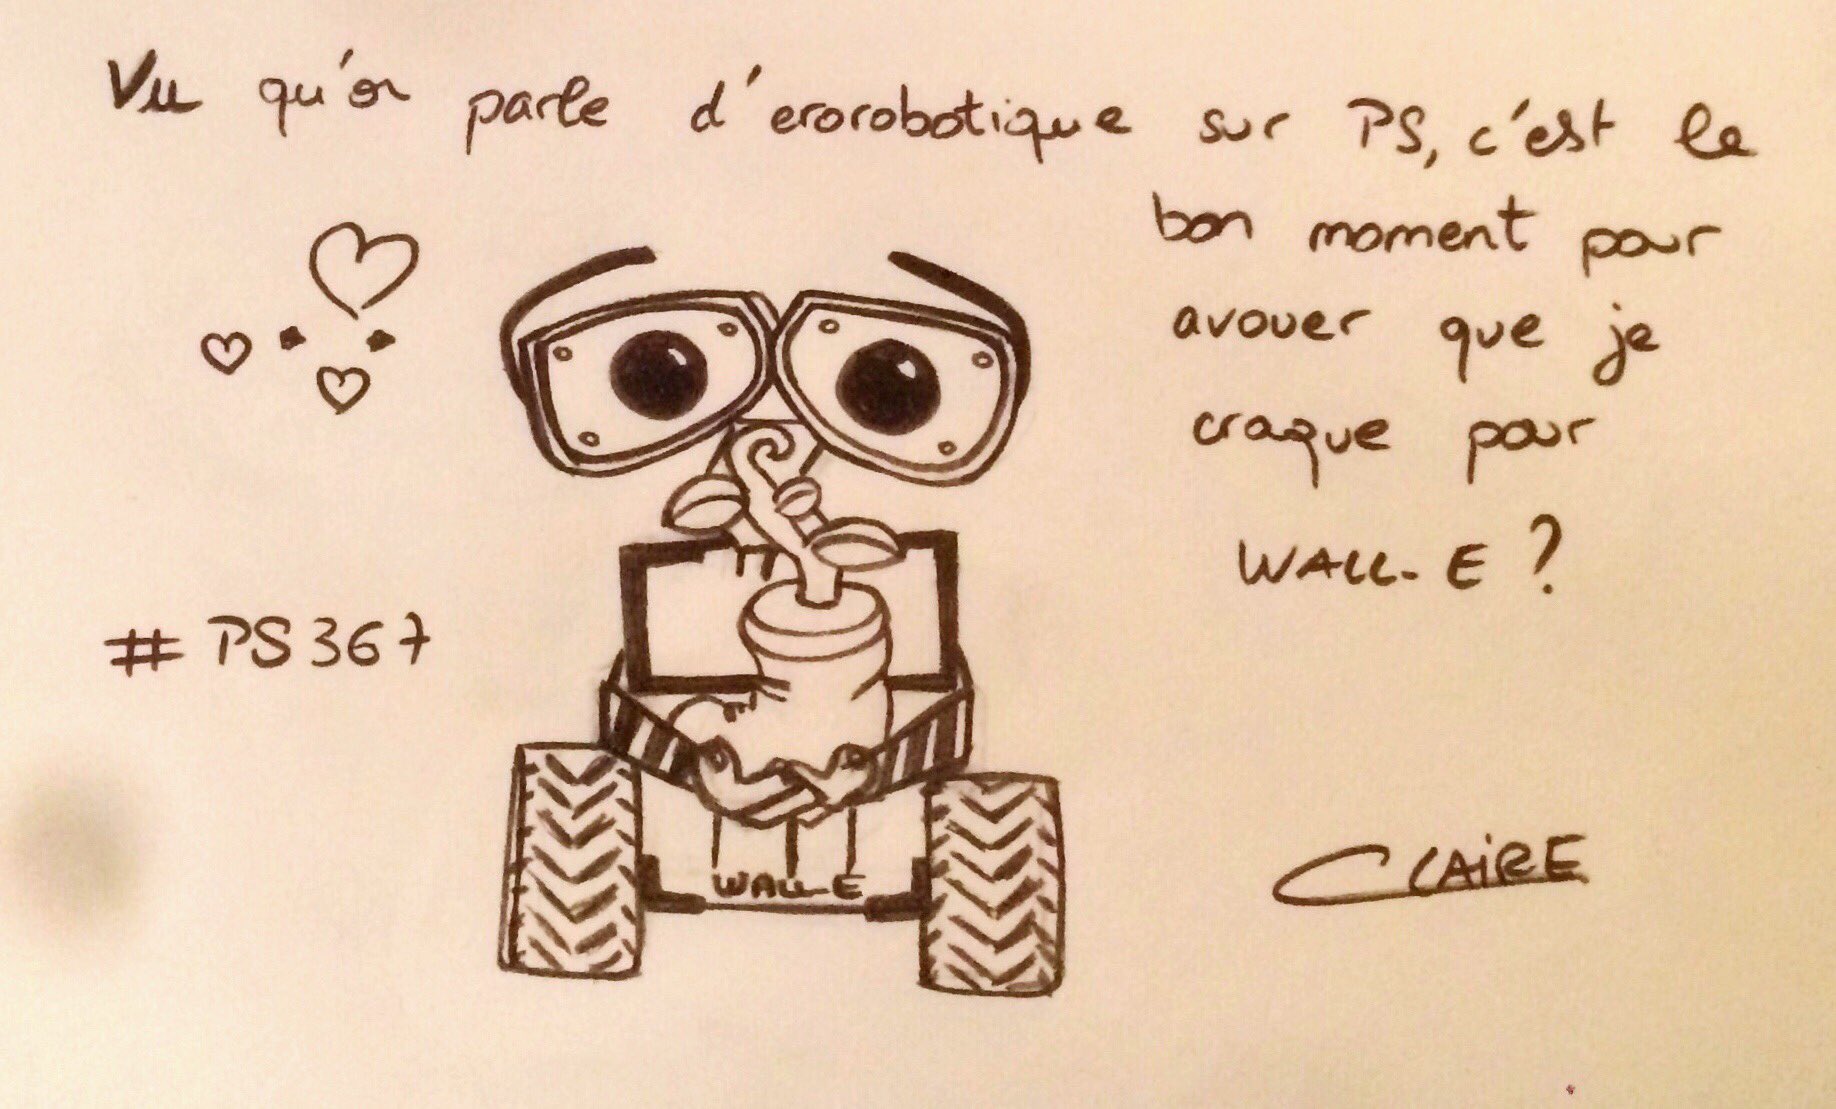 Vu qu'on parle d'erorobotique sur PS, c'est le
bon moment pour
avouer que je
craque pour
WALL-E ?
#PS367
WALL-E
CLAIRE